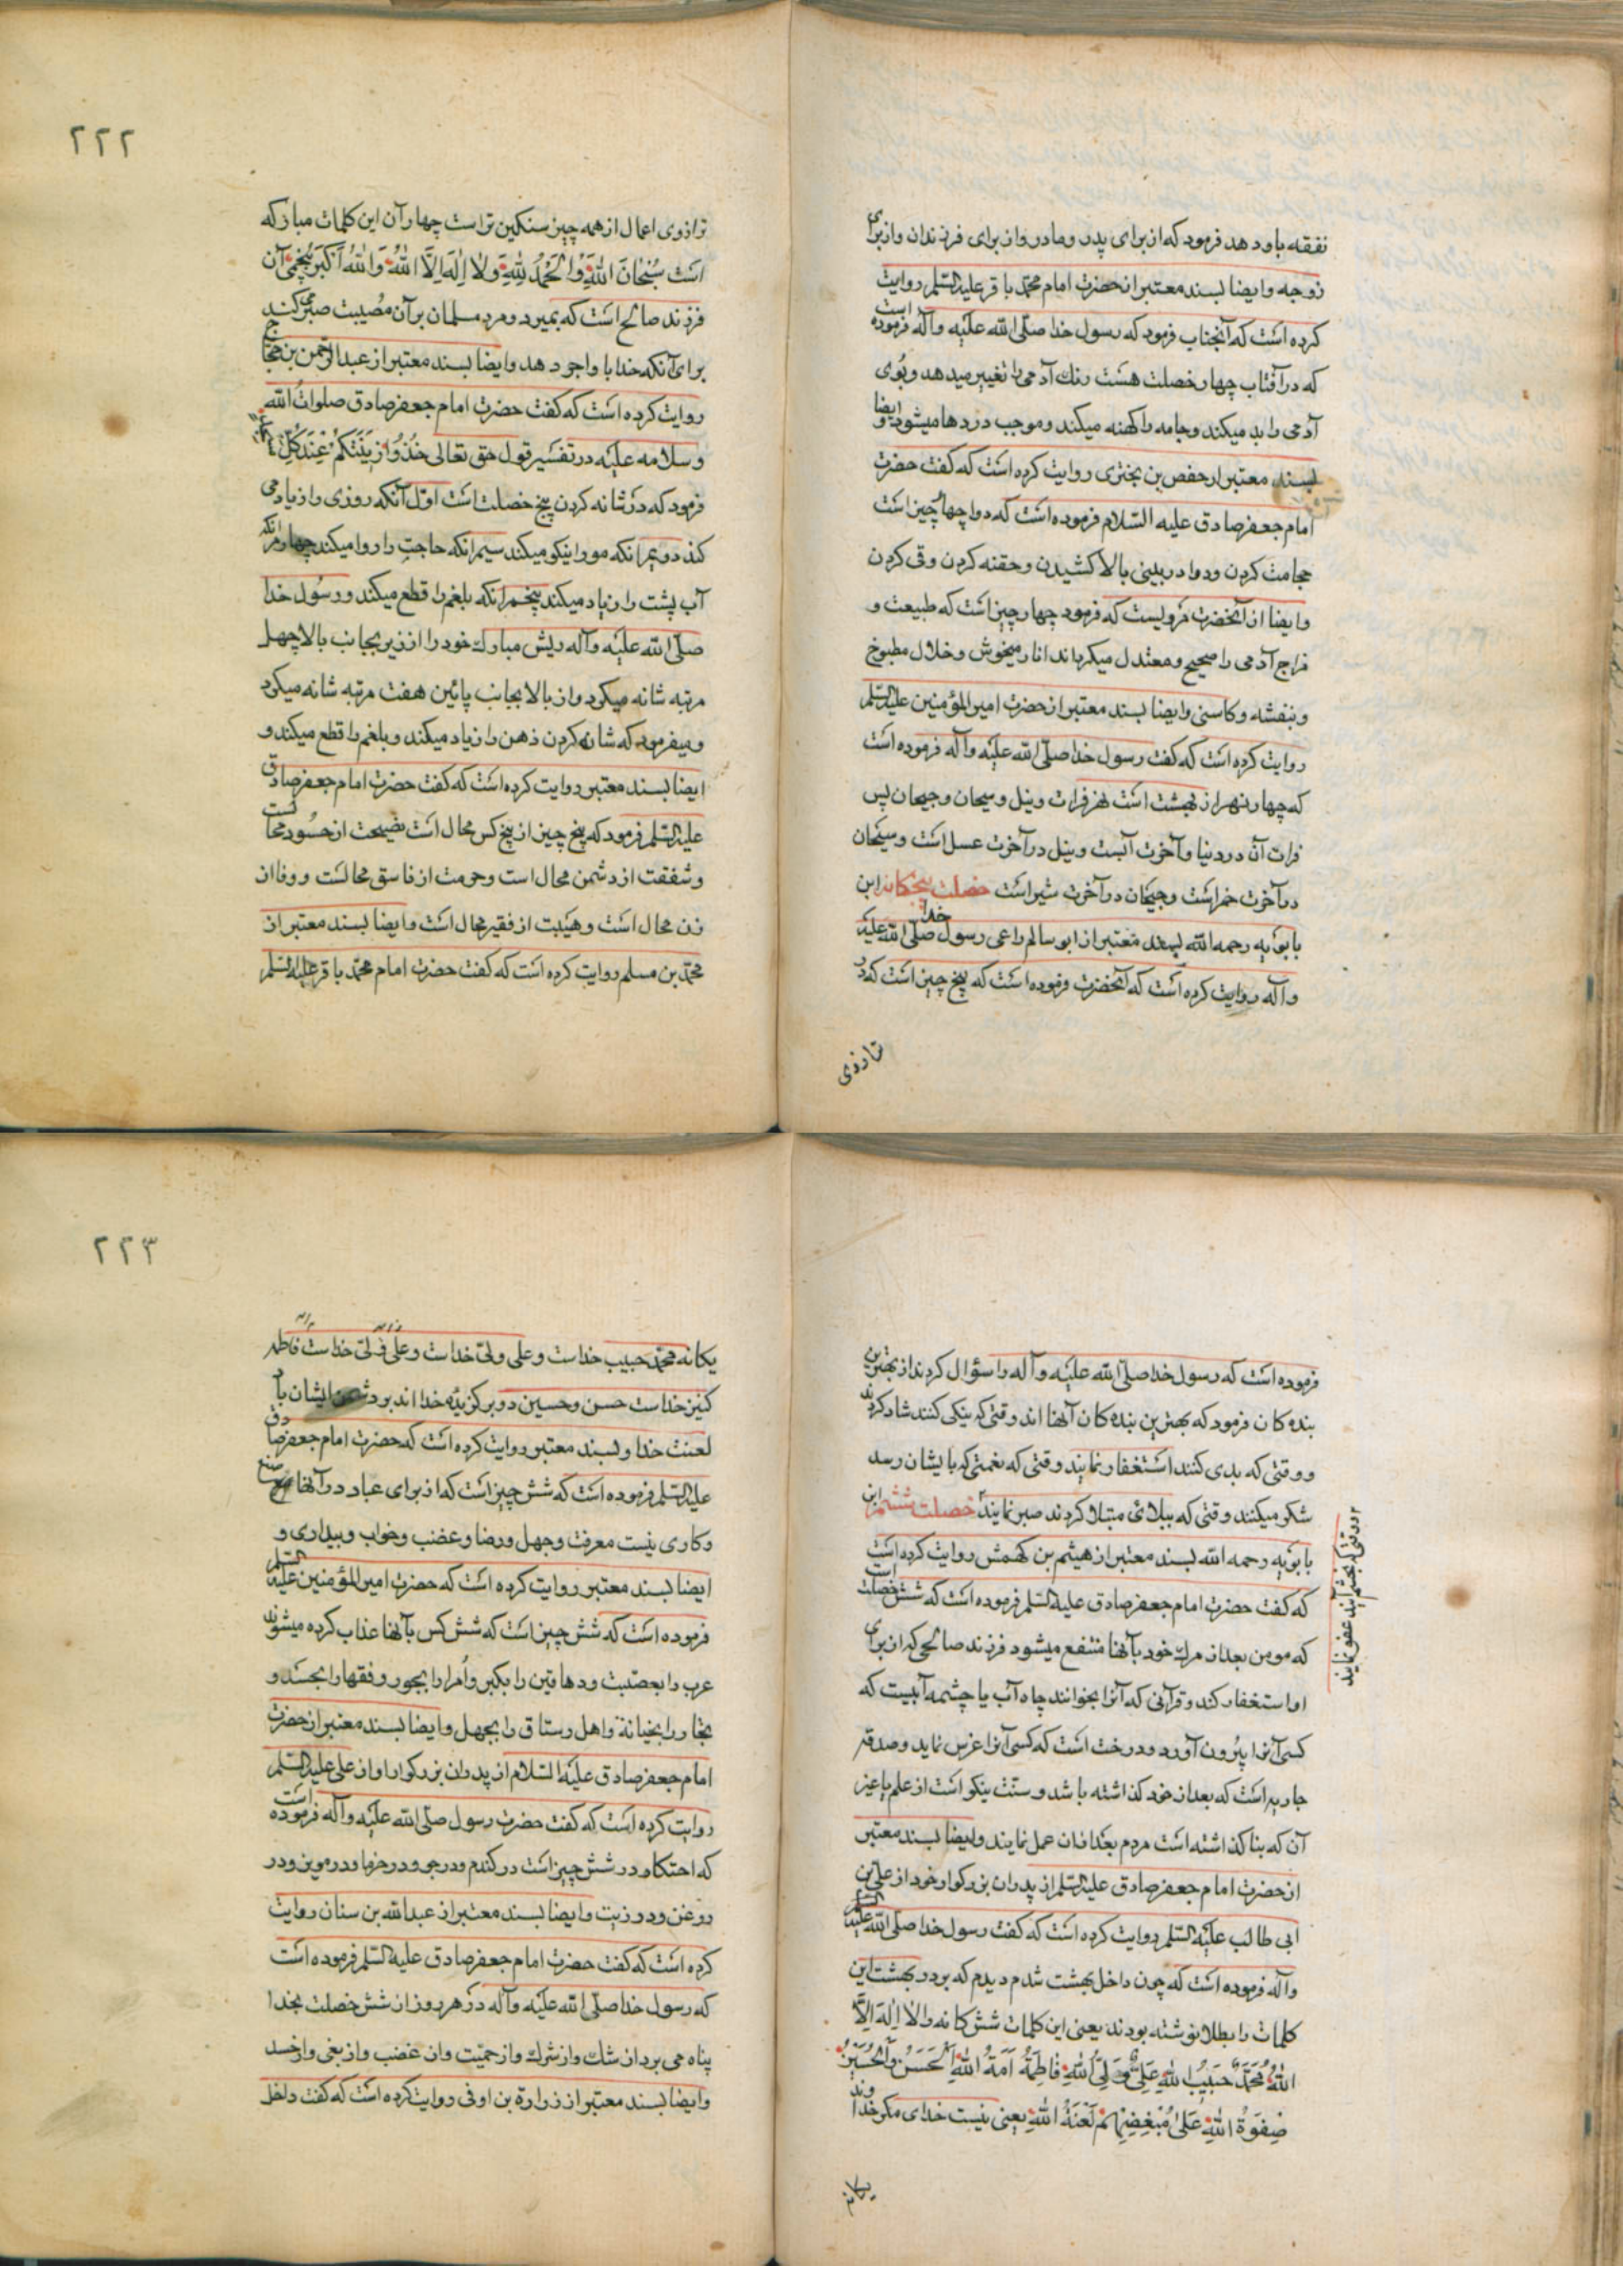 نفقه باو دهد فرمود که از برای پدر و مادر و از برای فرزندان و از برای
زوجه و ایضا بسند معتبر از حضرت امام محمد باقر علیه السلم روایت
کرده است که آنجناب فرمود که رسول خدا صلی الله علیه وآله فرموده است
که در آفتاب چهار خصلت هست رنك آدمی را تغییر میدهد و بوی
آدمی را بد میکند و جامه را کهنه میکند و موجب دردها میشود و ایضا
بسند معتبر از حفص بن بختری روایت کرده است که کفت حضرت
امام جعفر صادق علیه السلام فرموده است که دوا چهار چیز است
حجامت کردن و دوا در بینی بالا کشیدن و حقنه کردن و قی کردن
و ایضا از آنحضرت مرویست که فرمود چهار چیز است که طبیعت و
مزاج آدمی را صحیح و معتدل میکرداند انار میخوش و خلال مطبوخ
و بنفشه و کاسنی و ایضا بسند معتبر از حضرت امیر المؤمنین علیه السلم
روایت کرده است که کفت رسول خدا صلی الله علیه وآله فرموده است
که چهار نهر از بهشت است نهر فرات و نیل و سیحان و جیحان پس
فرات آن در دنیا و آخرت آبست و نیل در آخرت عسل است و سیحان
در آخرت خمر است و جیحان در آخرت شیر است خصلت پنجکانه ابن
بابویه رحمه الله بسند معتبر از ابو سالم راعی رسول خدا صلی الله علیه
وآله روایت کرده است که آنحضرت فرموده است که پنج چیز است که در
ترازوی
۲۲۲
ترازوی اعمال از همه چیز سنکین تر است چهار آن این کلمات مبارکه
است سُبْحانَ اللهِ وَالْحَمْدُ لِلهِ وَلا اِلهَ اِلَّا اللهُ وَاللهُ اَکْبَرُ پنجمی آن
فرزند صالح است که بمیرد و مرد مسلمان بر آن مصیبت صبر می کند
برای آنکه خدا باو اجر دهد و ایضا بسند معتبر از عبد الرحمن بن حجاج
روایت کرده است که کفت حضرت امام جعفر صادق صلوات الله
وسلامه علیه در تفسیر قول حق تعالی خُذُوا زینَتَکُمْ عِنْدَ کُلِّ
فرمود که در شانه کردن پنج خصلت است اول آنکه روزی را زیاد می
کند دویم آنکه مو را نیکو میکند سیم آنکه حاجت را روا میکند چهارم آنکه
آب پشت را زیاد میکند پنجم آنکه بلغم را قطع میکند و رسول خدا
صلی الله علیه وآله ریش مبارك خود را از زیر بجانب بالا چهل
مرتبه شانه میکرد و از بالا بجانب پائین هفت مرتبه شانه میکرد
و میفرمود که شانه کردن ذهن را زیاد میکند و بلغم را قطع میکند و
ایضا بسند معتبر روایت کرده است که کفت حضرت امام جعفر صادق
علیه السلم فرمود که پنج چیز از پنج کس محال است نصیحت از حسود محالست
و شفقت از دشمن محال است و حرمت از فاسق محالست و وفا از
زن محال است و هیبت از فقیر محال است و ایضا بسند معتبر از
محمد بن مسلم روایت کرده است که کفت حضرت امام محمد باقر علیه السلم
فرموده است که رسول خدا صلی الله علیه وآله را سؤال کردند از بهترین
بنده کان فرمود که بهترین بنده کان آنها اند وقتی که نیکی کنند شاد کردند
و وقتی که بدی کنند استغفار نمایند وقتی که نعمتی که بایشان رسد
شکر میکنند وقتی که ببلائی مبتلا کردند صبر نمایند خصلت ششم ابن
و وقتی که بخشم آیند عفو نمایند
بابویه رحمه الله بسند معتبر از هیثم بن کهمش روایت کرده است
که کفت حضرت امام جعفر صادق علیه السلم فرموده است که شش خصلت است
که مومن بعد از مرك خود بآنها منتفع میشود فرزند صالحی که از برای
او استغفار کند و قرآنی که آنرا بخوانند چاه آب یا چشمه آبیست که
کسی آنرا بیرون آورد و درخت است که کسی آنرا غرس نماید و صدقه
جاریه است که بعد از خود کذاشته باشد و سنت نیکو است از علم یا غیر
آن که بنا کذاشته است مردم بعد از آن عمل نمایند و ایضا بسند معتبر
از حضرت امام جعفر صادق علیه السلم از پدران بزرکوار خود از علی بن
ابی طالب علیه السلم روایت کرده است که کفت رسول خدا صلی الله علیه
وآله فرموده است که چون داخل بهشت شدم دیدم که بر در بهشت این
کلمات را بطلا نوشته بودند یعنی این کلمات شش کانه را لا اِلهَ اِلَّا
اللهُ مُحَمَّدٌ حَبیبُ اللهِ عَلِیٌّ وَلِیُّ اللهِ فاطِمَةُ اَمَةُ اللهِ اَلْحَسَنُ وَالْحُسَیْنُ
صِفْوَةُ اللهِ عَلی مُبْغِضِهِمْ لَعْنَةُ اللهِ یعنی نیست خدای مکر خداوند
یکانه
۲۲۳
یکانه محمد حبیب خداست و علی ولی خداست فاطمه
کنیز خداست حسن و حسین دو برکزیده خدا اند بر دشمن ایشان باد
لعنت خدا و بسند معتبر روایت کرده است که حضرت امام جعفر صادق
علیه السلم فرموده است که شش چیز است که از برای عباد در آنها صنع
و کاری نیست معرفت و جهل و رضا و غضب و خواب و بیداری و
ایضا بسند معتبر روایت کرده است که حضرت امیر المؤمنین علیه السلم
فرموده است که شش چیز است که شش کس بآنها عذاب کرده میشوند
عرب را بعصبیت و دهاقین را بکبر و امرا را بجور و فقها را بحسد و
تجار را بخیانة و اهل رستاق را بجهل و ایضا بسند معتبر از حضرت
امام جعفر صادق علیه السلام از پدران بزرکوار او از علی علیه السلم
روایت کرده است که کفت حضرت رسول صلی الله علیه وآله فرموده است
که احتکار در شش چیز است در کندم و در جو و در خرما و در مویز و در
روغن و در زیت و ایضا بسند معتبر از عبدالله بن سنان روایت
کرده است که کفت حضرت امام جعفر صادق علیه السلم فرموده است
که رسول خدا صلی الله علیه وآله در هر روز از شش خصلت بخدا
پناه می برد از شك و از شرك و از حمیت و از غضب و از بغی و از حسد
و ایضا بسند معتبر از زرارة بن اوفی روایت کرده است که کفت داخل